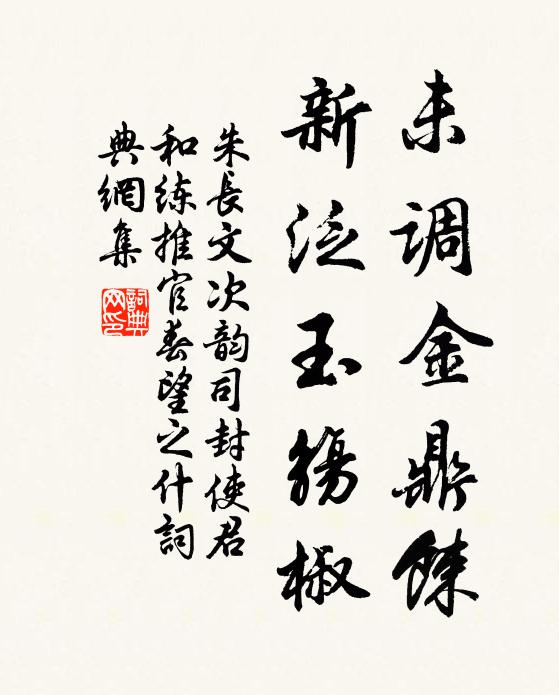 未调金鼎餗
新泛玉觞椒
朱長文次韵司封使君
和练推官春望之什詞
典網集
詞典
网印